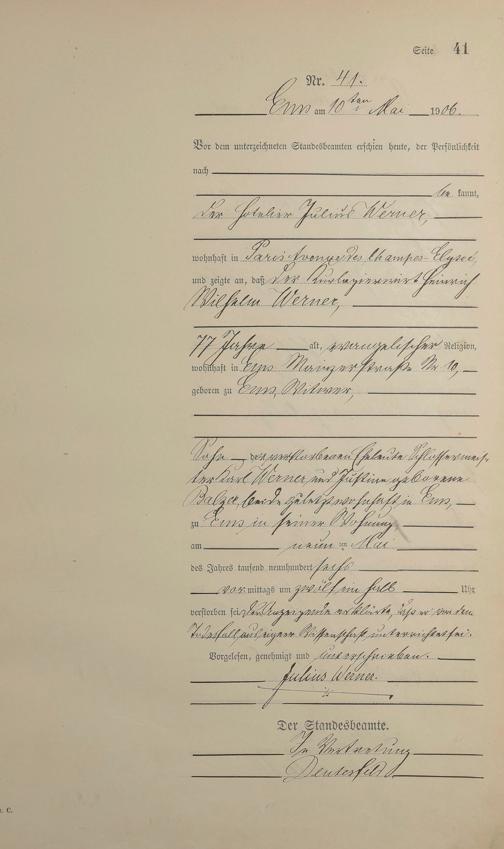 Seite 41
Nr. 41.
Ems am 10ten Mai 1906.
Vor dem unterzeichneten Standesbeamten erschien heute, der Persönlichkeit
nach
be kannt,
der Hotelier Julius Werner,
wohnhaft in Paris Avenue des Champes-Elysée,
und zeigte an, daß der Kurlogierwirt Heinrich
Wilhelm Werner,
77 Jahre alt, evangelischer Religion,
wohnhaft in Ems Mainzerstraße Nr 10,
geboren zu Ems, Witwer,
Sohn der verstorbenen Eheleute Schlossermeis-
ter Karl Werner und Justine geborene
Balzer, beide zuletzt wohnhaft in Ems,
zu Ems in seiner Wohnung
am neunten Mai
des Jahres tausend neunhundert sechs
vor mittags um zwölf ein halb Uhr
verstorben sei, der Anzeigende erklärte, daß er von dem
Todesfall aus eigener Wissenschaft unterrichtet sei.
Vorgelesen, genehmigt und unterschrieben.
Julius Werner.
Der Standesbeamte.
In Vertretung
C.